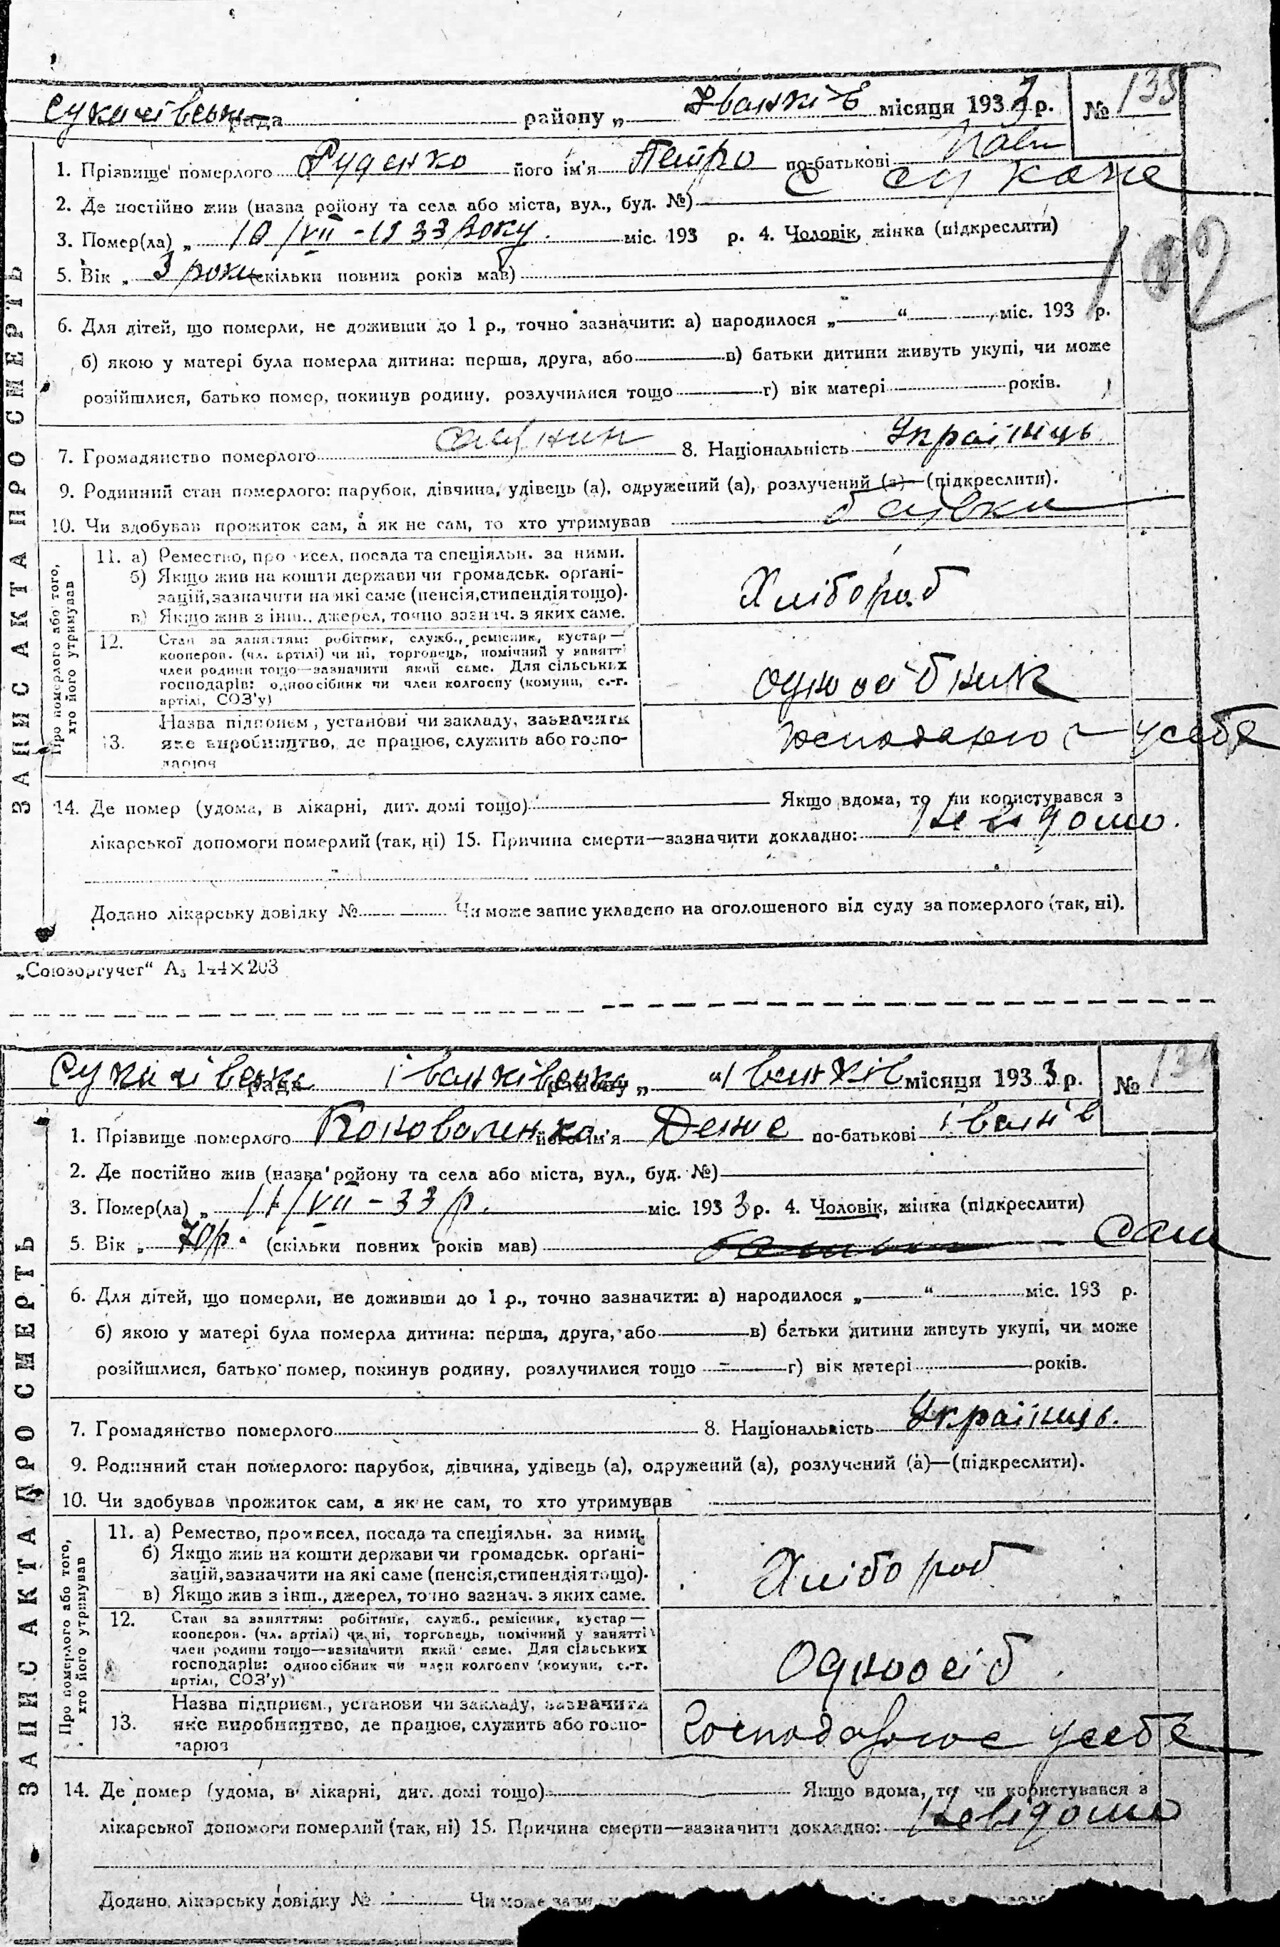 Сукачівська рада району „ Іванків місяця 1933 р. № 135
1. Прізвище померлого Руденко його ім'я Петро по-батькові Павл
2. Де постійно жив (назва району та села або міста, вул., буд. №) с Сукачі
3. Помер(ла) „ 10/VII - 1933 року. міс. 193 р. 4. Чоловік, жінка (підкреслити)
5. Вік „ 3 роки (скільки повних років мав)
6. Для дітей, що померли, не доживши до 1 р., точно зазначити: а) народилося „ “ , міс. 193 р.
б) якою у матері була померла дитина: перша, друга, або в) батьки дитини живуть укупі, чи може
розійшлися, батько помер, покинув родину, розлучилися тощо г) вік матері років.
7. Громадянство померлого 8. Національність Українець
9. Родинний стан померлого: парубок, дівчина, удівець (а), одружений (а), розлучений (а)—(підкреслити).
10. Чи здобував прожиток сам, а як не сам, то хто утримував батьки
ЗАПИС АКТА ПРО СМЕРТЬ
Про померлого або того, хто його утримував
11. а) Ремество, промисел, посада та спеціяльн. за ними.
б) Якщо жив на кошти держави чи громадськ. органі-
зацій, зазначити на які саме (пенсія, стипендія тощо).
в) Якщо жив з інш., джерел, точно зазнач. з яких саме.
Хлібороб
12. Стан за заняттям: робітник, служб., ремісник, кустар—
кооперов. (чл. артілі) чи ні, торговець, помічний у занятті
член родини тощо—зазначити який саме. Для сільських
господарів: одноосібник чи член колгоспу (комуни, с.-г.
артілі, СОЗ'у)
одноосібник
13. Назва підприєм., установи чи закладу, зазначити
яке виробництво, де працює, служить або госпо-
дарює
господарює у себе
14. Де помер (удома, в лікарні, дит. домі тощо) Якщо вдома, то чи користувався з
лікарської допомоги померлий (так, ні) 15. Причина смерти—зазначити докладно: Невідомо.
Додано лікарську довідку № Чи може запис укладено на оголошеного від суду за померлого (так, ні).
„Союзоргучет“ А₅ 144×203
Сукачівська рада Іванківська району „ “ Іванків місяця 1933 р. №
1. Прізвище померлого Коноваленко його ім'я по-батькові Іванів
2. Де постійно жив (назва району та села або міста, вул., буд. №)
3. Помер(ла) „ 11/VII - 33 р. міс. 1933 р. 4. Чоловік, жінка (підкреслити)
5. Вік „ 70 р. (скільки повних років мав) сам
6. Для дітей, що померли, не доживши до 1 р., точно зазначити: а) народилося „ “ міс. 193 р.
б) якою у матері була померла дитина: перша, друга, або в) батьки дитини живуть укупі, чи може
розійшлися, батько помер, покинув родину, розлучилися тощо г) вік матері років.
7. Громадянство померлого 8. Національність Українець.
9. Родинний стан померлого: парубок, дівчина, удівець (а), одружений (а), розлучений (а)—(підкреслити).
10. Чи здобував прожиток сам, а як не сам, то хто утримував
ЗАПИС АКТА ПРО СМЕРТЬ
Про померлого або того, хто його утримував
11. а) Ремество, промисел, посада та спеціяльн. за ними.
б) Якщо жив на кошти держави чи громадськ. органі-
зацій, зазначити на які саме (пенсія, стипендія тощо).
в) Якщо жив з інш., джерел, точно зазнач. з яких саме.
Хлібороб
12. Стан за заняттям: робітник, служб., ремісник, кустар—
кооперов. (чл. артілі) чи ні, торговець, помічний у занятті
член родини тощо—зазначити який саме. Для сільських
господарів: одноосібник чи член колгоспу (комуни, с.-г.
артілі, СОЗ'у)
Одноосіб
13. Назва підприєм., установи чи закладу, зазначити
яке виробництво, де працює, служить або госпо-
дарює
Господарює у себе
14. Де помер (удома, в лікарні, дит. домі тощо) Якщо вдома, то чи користувався з
лікарської допомоги померлий (так, ні) 15. Причина смерти—зазначити докладно: Невідомо
Додано лікарську довідку № Чи може